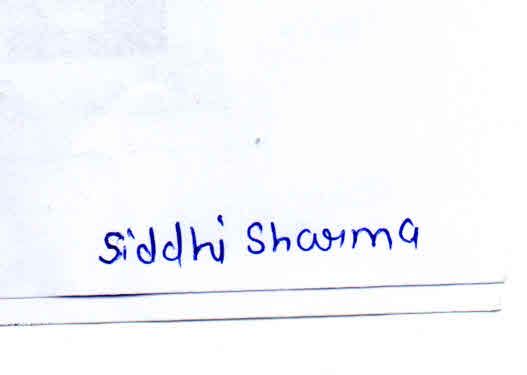 Siddhi Sharma